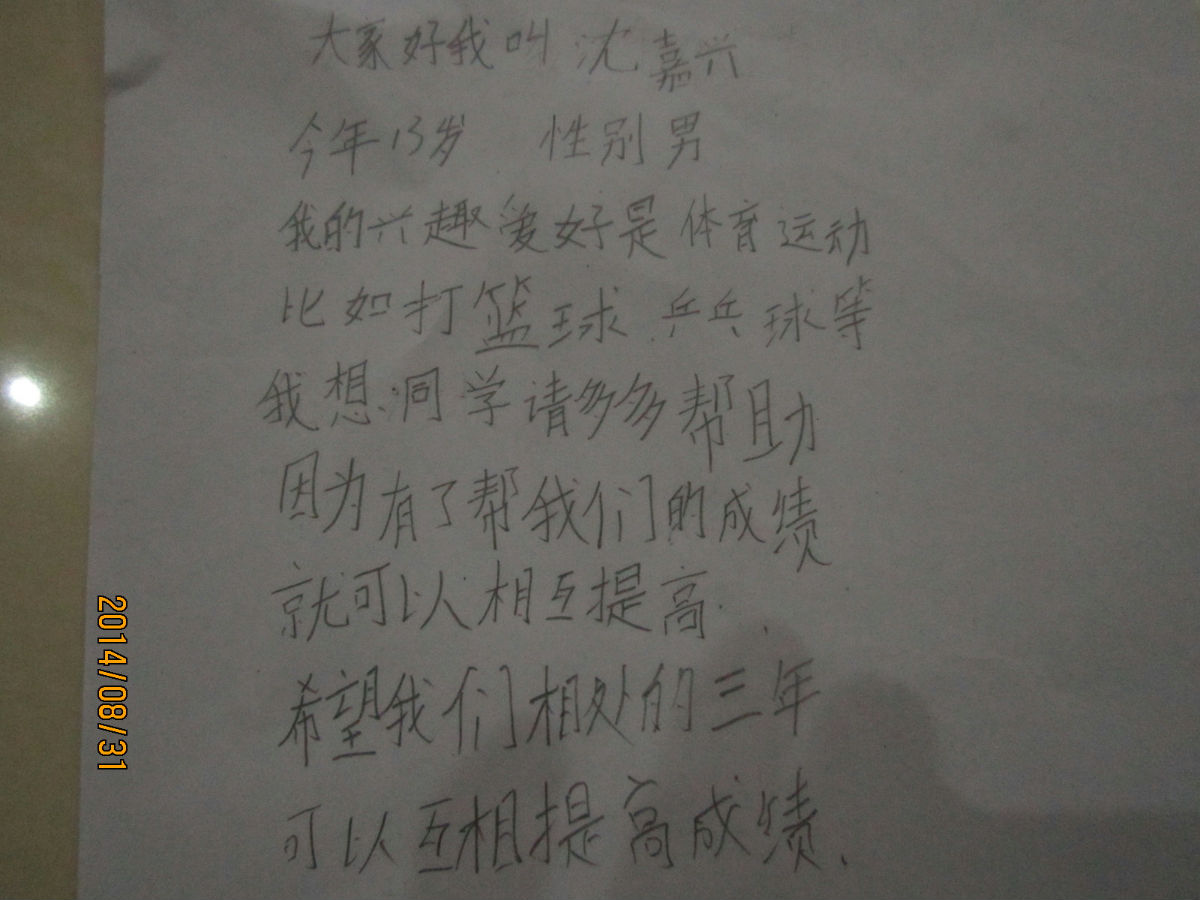 大家好我叫 沈嘉兴
今年13岁 性别男
我的兴趣爱好是体育运动
比如打篮球 乒乓球等
我想同学请多多帮助
因为有了帮我们的成绩
就可以相互提高.
希望我们相处的三年
可以互相提高成绩.
2014/08/31